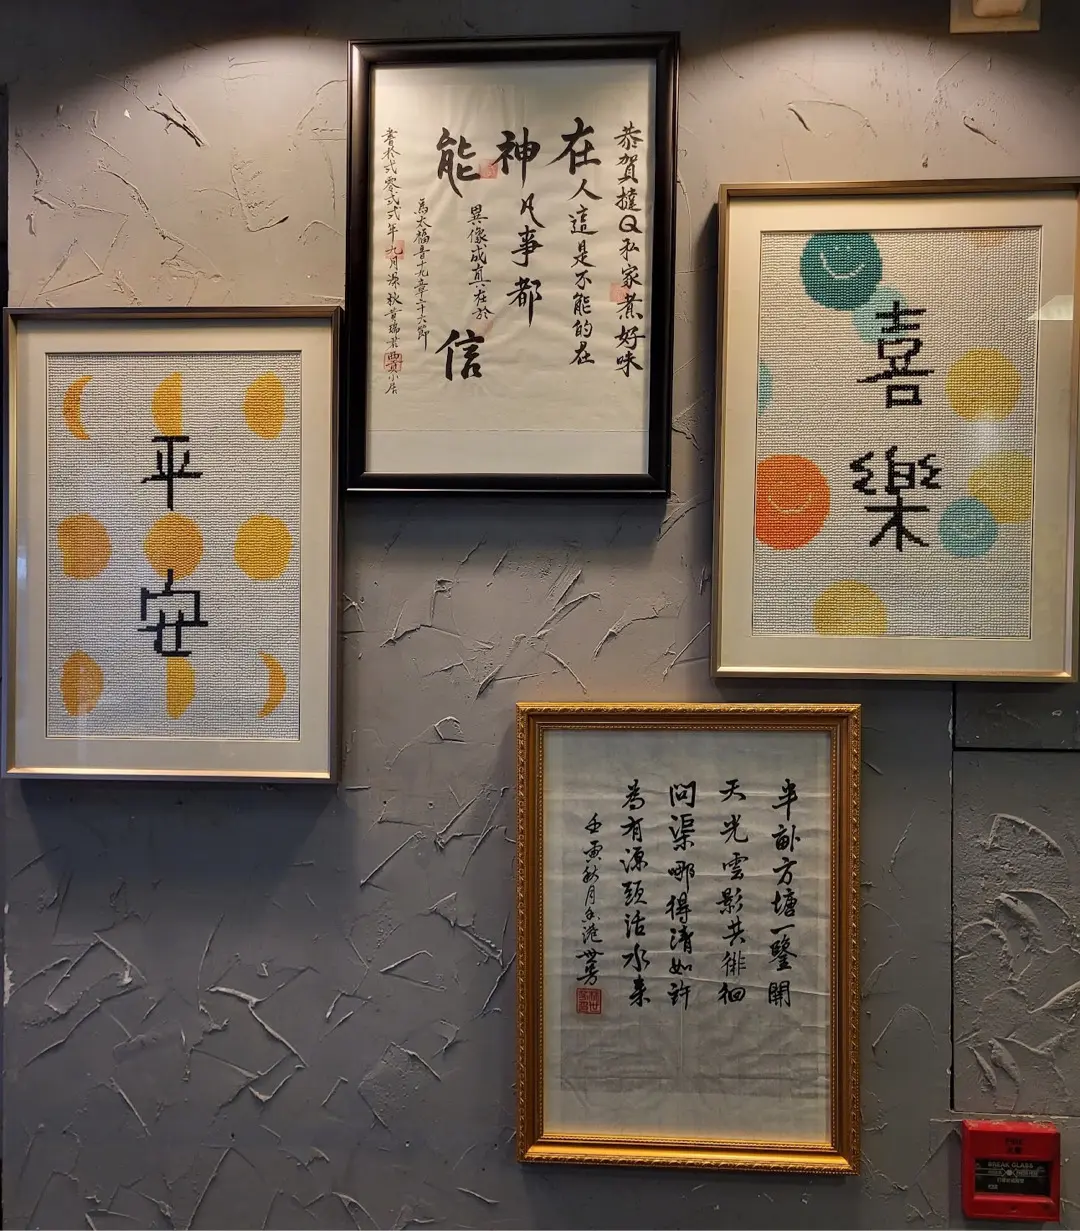 恭賀撻Q私家煮好味
在人這是不能的在
神凡事都
能
異像成真在於
信
馬太福音十九章二十六節
平
安
喜
樂
半畝方塘一鑒開
天光雲影共徘徊
問渠哪得清如許
為有源頭活水來
壬寅秋月香港世芳
FIRE
BREAK GLASS